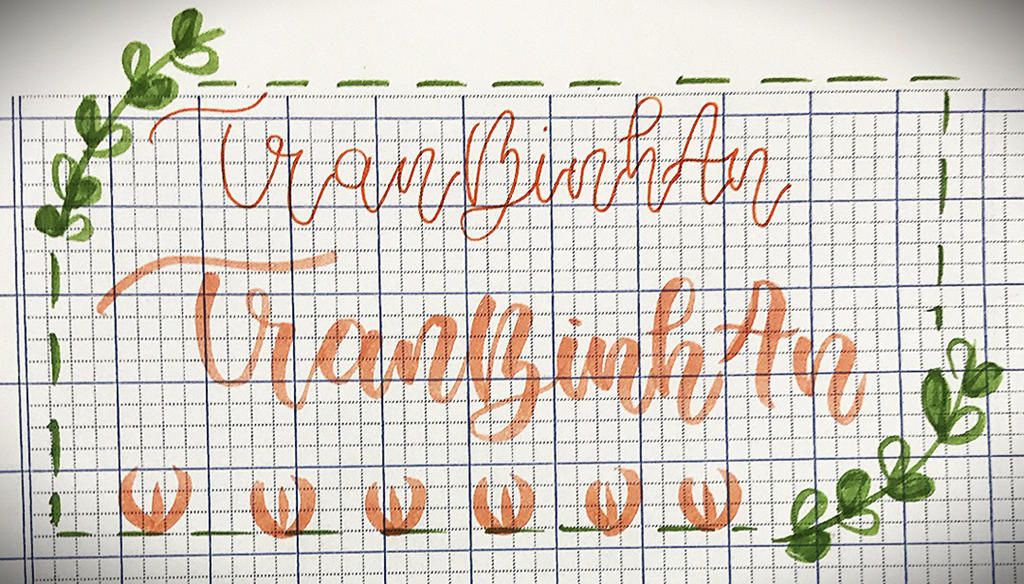 Tran Binh An
Tran Binh An